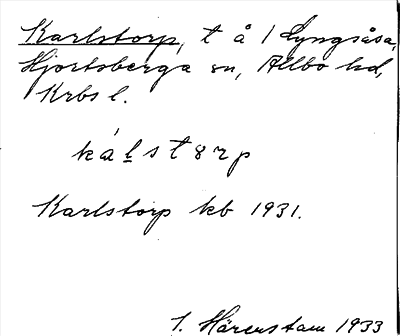 Karlstorp, t å 1 Lyngsåsa,
Hjortsberga sn, Allbo hd,
Krbs l.
kálstorp
Karlstorp kb 1931.
I. Härenstam 1933